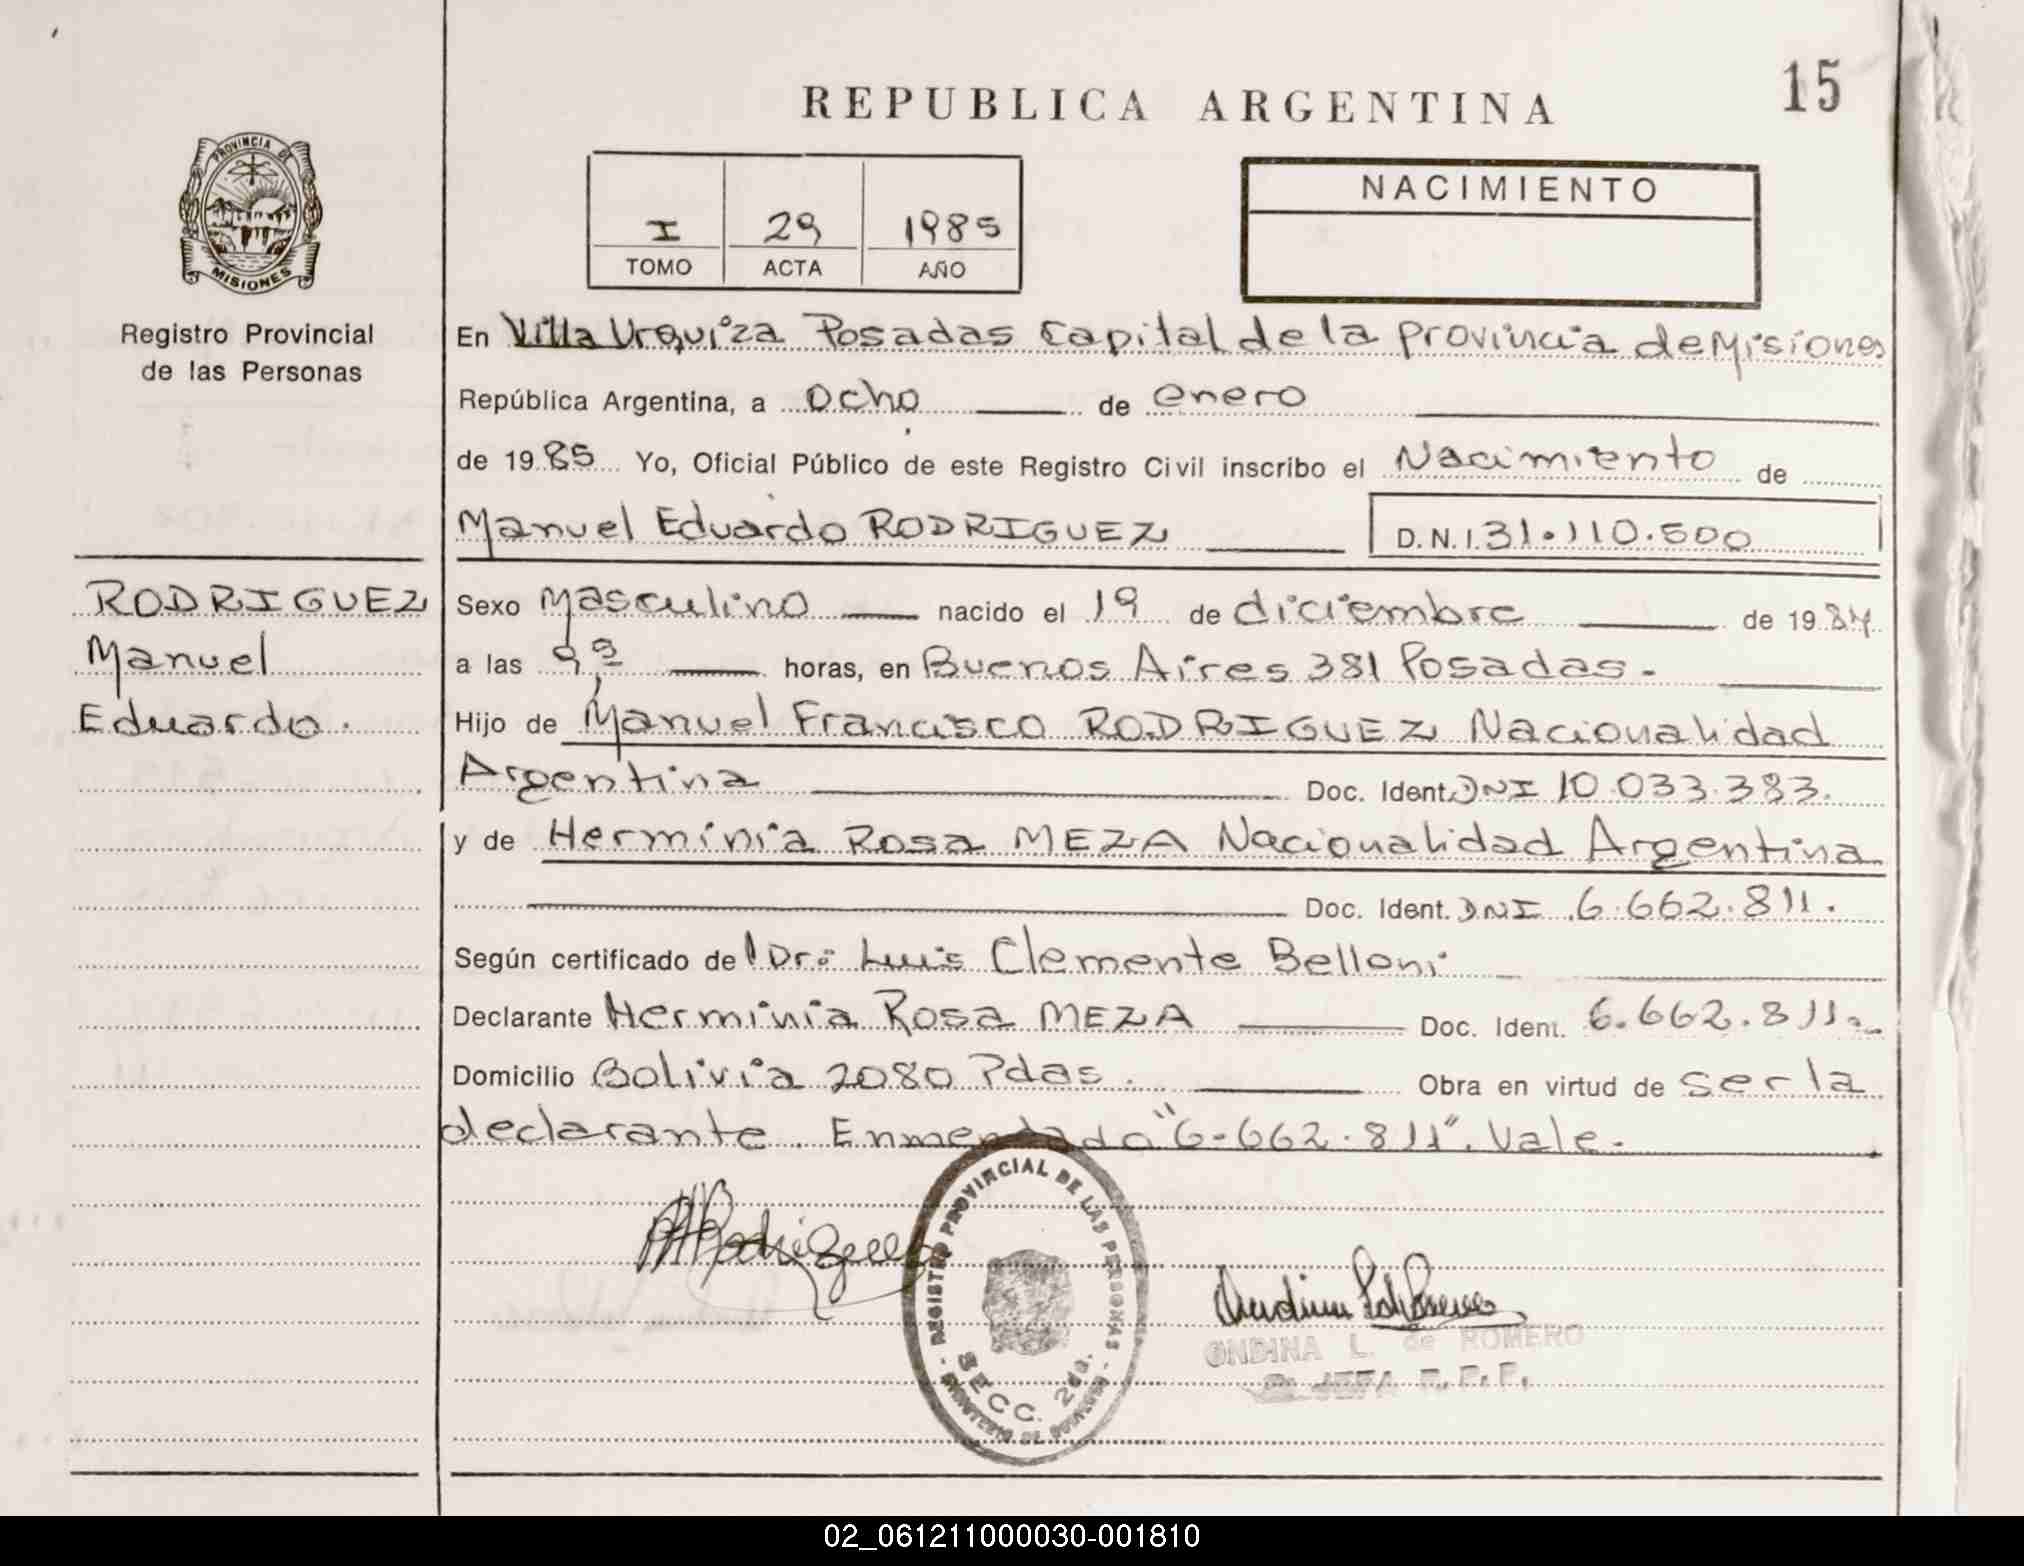 REPUBLICA ARGENTINA
15
PROVINCIA DE
MISIONES
Registro Provincial
de las Personas
I 29 1985
TOMO ACTA AÑO
NACIMIENTO
En Villa Urquiza Posadas Capital de la Provincia de Misiones
República Argentina, a ocho de enero
de 1985 Yo, Oficial Público de este Registro Civil inscribo el Nacimiento de
Manuel Eduardo RODRIGUEZ D.N.I. 31.110.500
RODRIGUEZ
Manuel
Eduardo.
Sexo Masculino nacido el 19 de diciembre de 1984
a las 9 horas, en Buenos Aires 381 Posadas.
Hijo de Manuel Francisco RODRIGUEZ Nacionalidad
Argentina Doc. Ident. DNI 10.033.383.
y de Herminia Rosa MEZA Nacionalidad Argentina
Doc. Ident. DNI 6.662.811.
Según certificado del Dr. Luis Clemente Belloni
Declarante Herminia Rosa MEZA Doc. Ident. 6.662.811.
Domicilio Bolivia 2080 Pdas. Obra en virtud de ser la
declarante. Enmendado "6.662.811". Vale.
REGISTRO PROVINCIAL DE LAS PERSONAS
SECC. 2da.
MINISTERIO DE GOBIERNO
ONDINA L. de ROMERO
JEFA
02_061211000030-001810